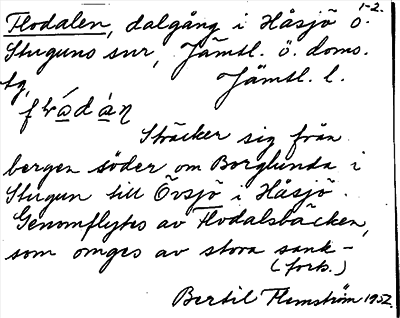 1-2.
Flodalen, dalgång i Håsjö o.
Stuguns snr, Jämtl. ö. doms.
tg, Jämtl. l.
Sträcker sig från
bergen söder om Borglunda i
Stugun till Övsjö i Håsjö.
Genomflytes av Flodalsbäcken,
som omges av stora sank-
(forts.)
Bertil Flemström 1952.